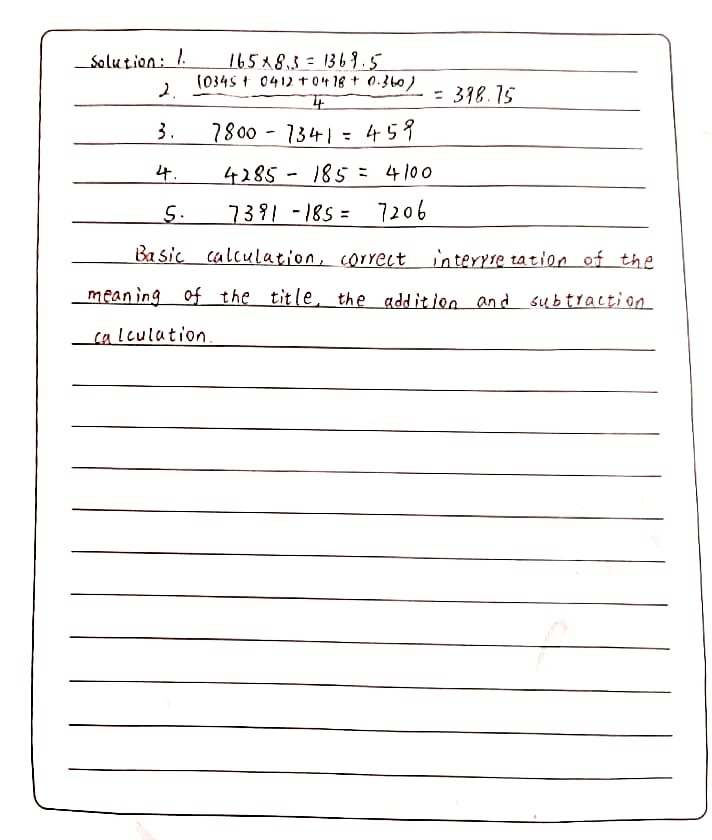 Solution: 1. 165×8.3 = 1369.5
2. (0345 + 0412 + 0478 + 0.360) / 4 = 398.75
3. 7800 - 7341 = 459
4. 4285 - 185 = 4100
5. 7391 - 185 = 7206
Basic calculation, correct interpretation of the
meaning of the title, the addition and subtraction
calculation.